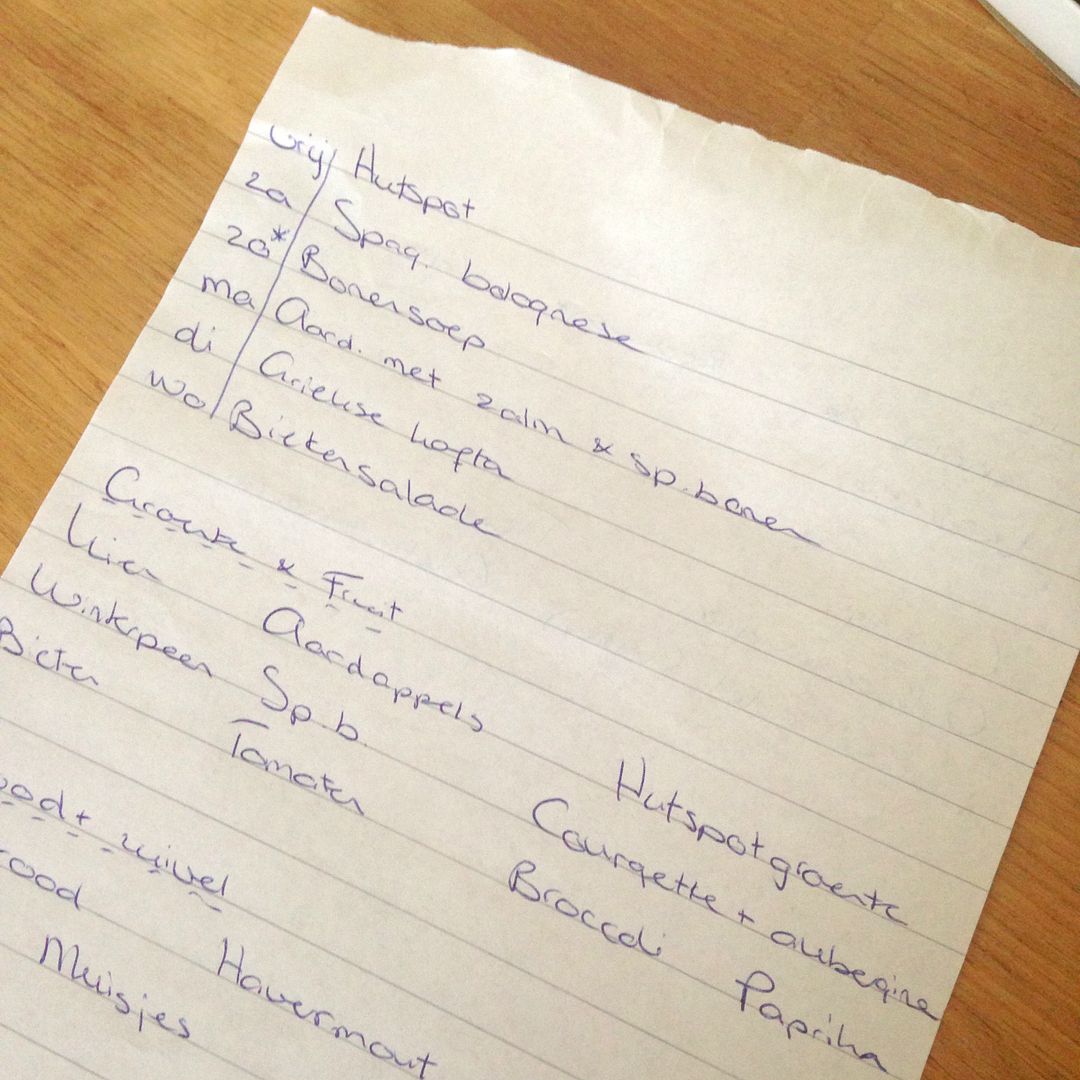 Vrij Hutspot
za Spag. bolognese
zo* Bonensoep
ma Aard. met zalm & sp.bonen
di Griekse kofta
wo Bietensalade
Groente & Fruit
Uien Aardappels Hutspotgroente
Winterpeen Sp.b. Courgette + aubergine
Bieten Tomaten Broccoli Paprika
ood + zuivel
rood Havermout
Muisjes